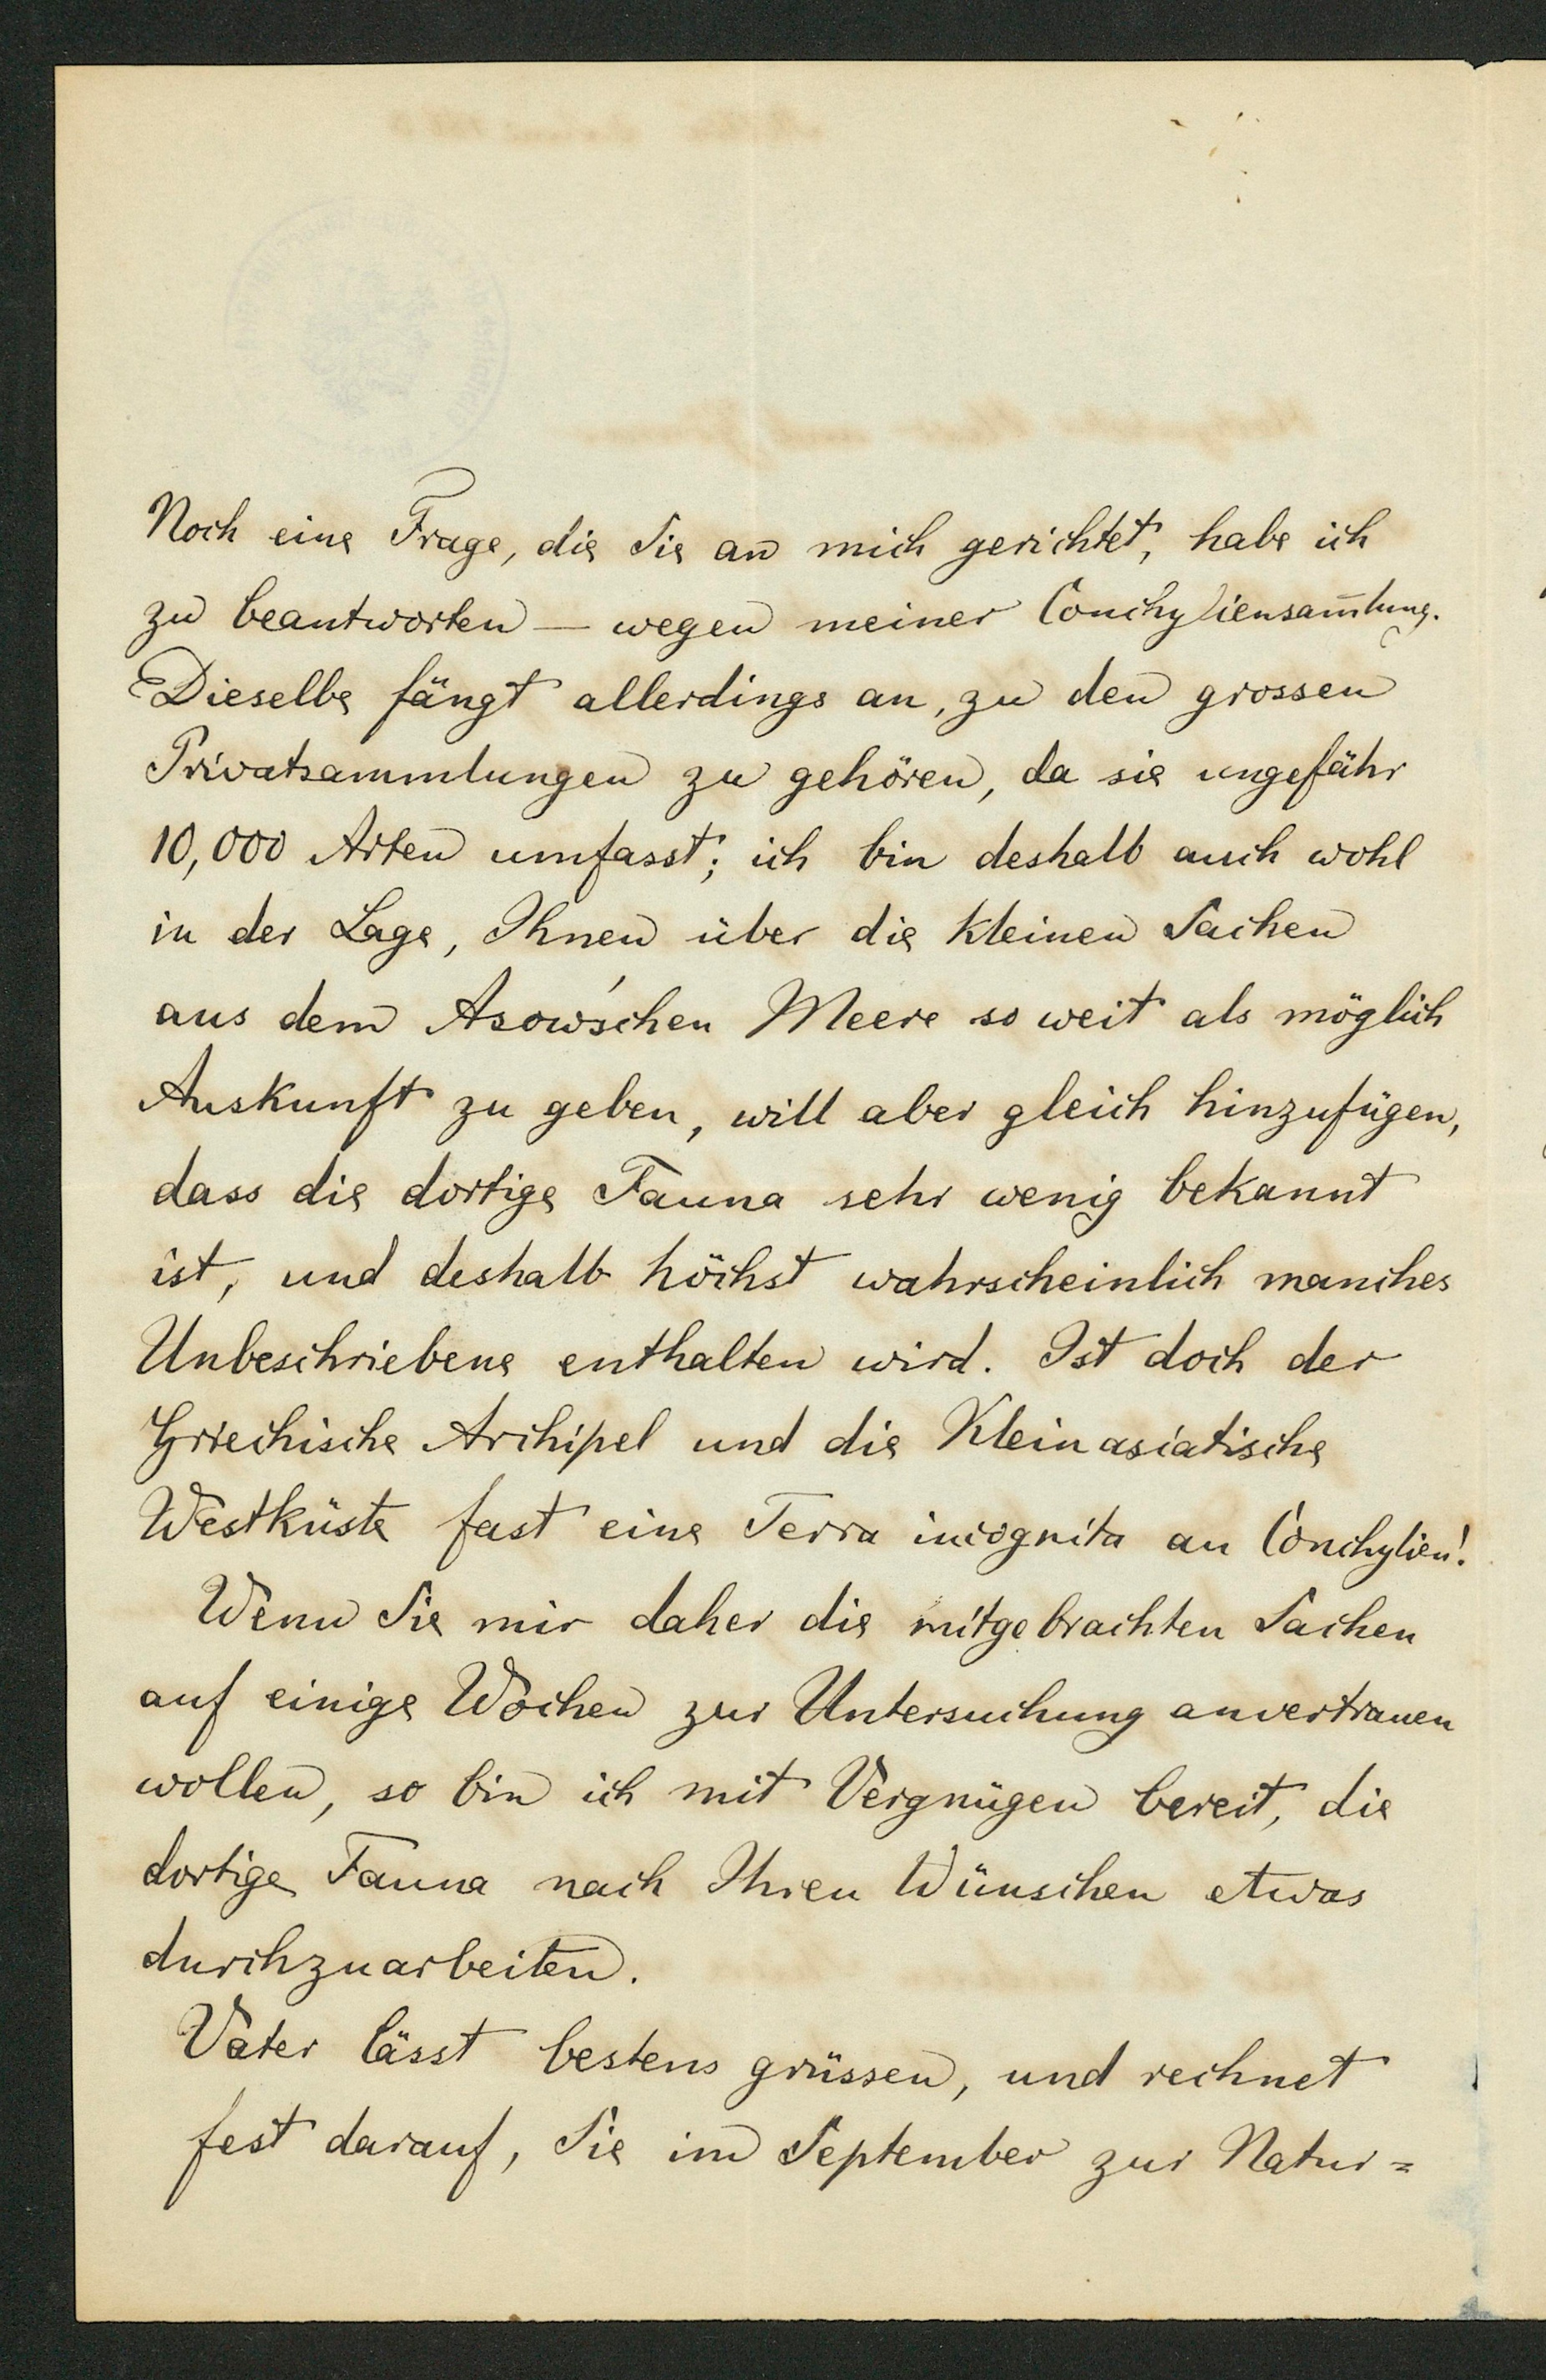 Noch eine Frage, die Sie an mich gerichtet, habe ich
zu beantworten — wegen meiner Conchyliensam̄lung.
Dieselbe fängt allerdings an, zu den grossen
Privatsammlungen zu gehören, da sie ungefähr
10,000 Arten umfasst; ich bin deshalb auch wohl
in der Lage, Ihnen über die kleinen Sachen
aus dem Asow'schen Meere so weit als möglich
Auskunft zu geben, will aber gleich hinzufügen,
dass die dortige Fauna sehr wenig bekannt
ist, und deshalb höchst wahrscheinlich manches
Unbeschriebene enthalten wird. Ist doch der
Griechische Archipel und die Kleinasiatische
Westküste fast eine Terra incognita an Conchylien!
Wenn Sie mir daher die mitgebrachten Sachen
auf einige Wochen zur Untersuchung anvertrauen
wollen, so bin ich mit Vergnügen bereit, die
dortige Fauna nach Ihren Wünschen etwas
durchzuarbeiten.
Vater lässt bestens grüssen, und rechnet
fest darauf, Sie im September zur Natur=